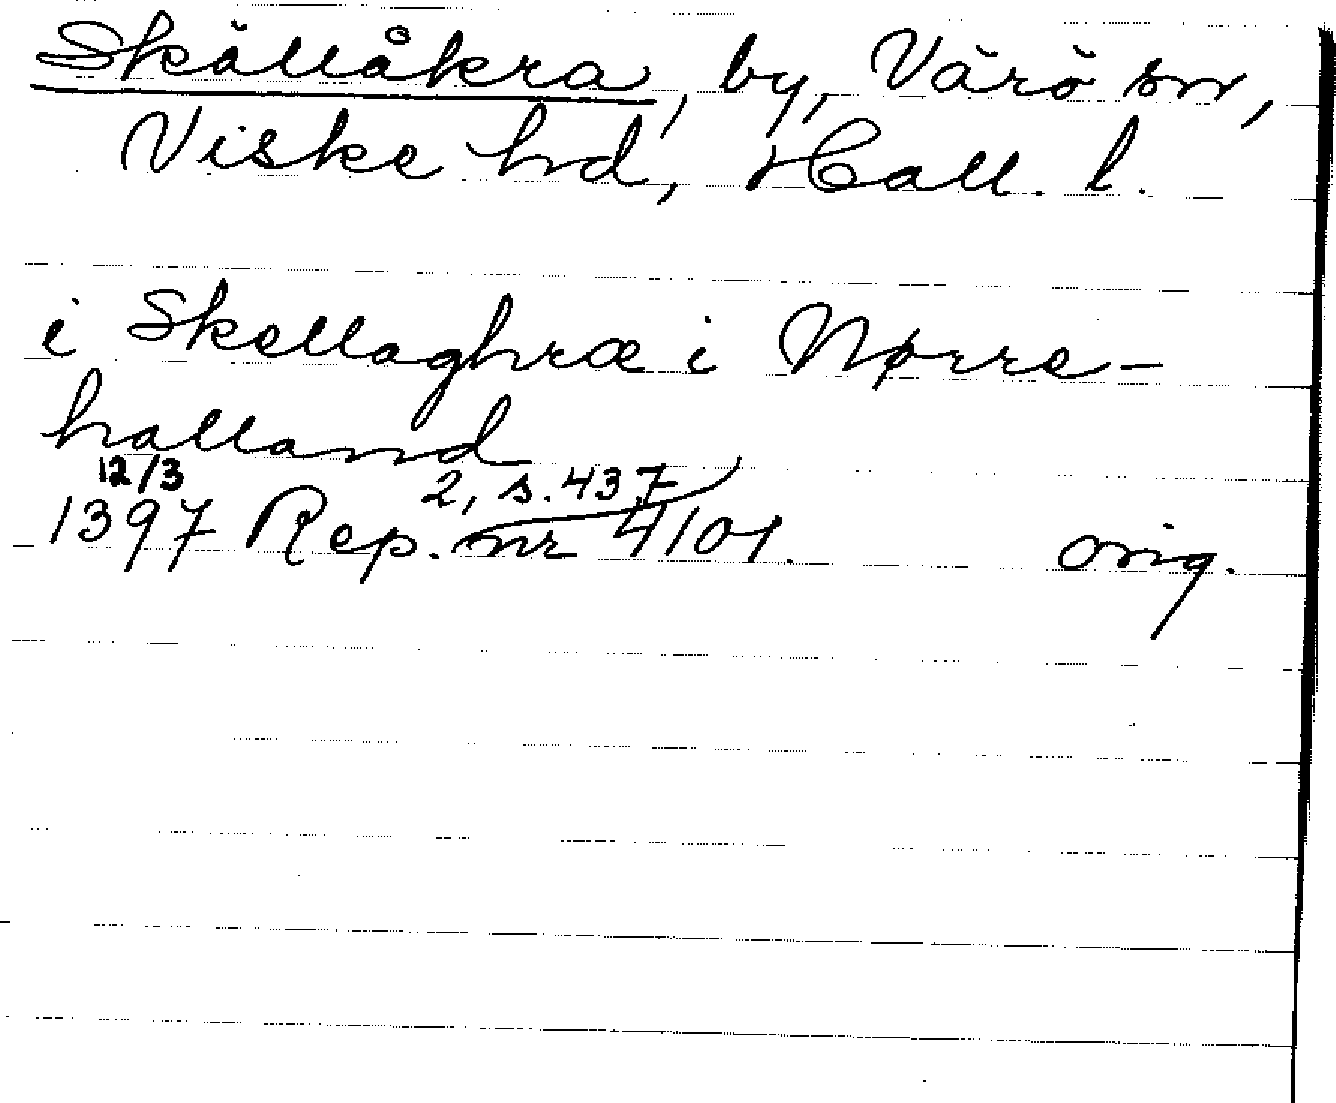 Skällåkra, by, Värö sn,
Viske hd, Hall. l.
i Skellaghræ i Nørre-
halland
12/3 2, s. 437
1397 Rep. nr 4101. orig.